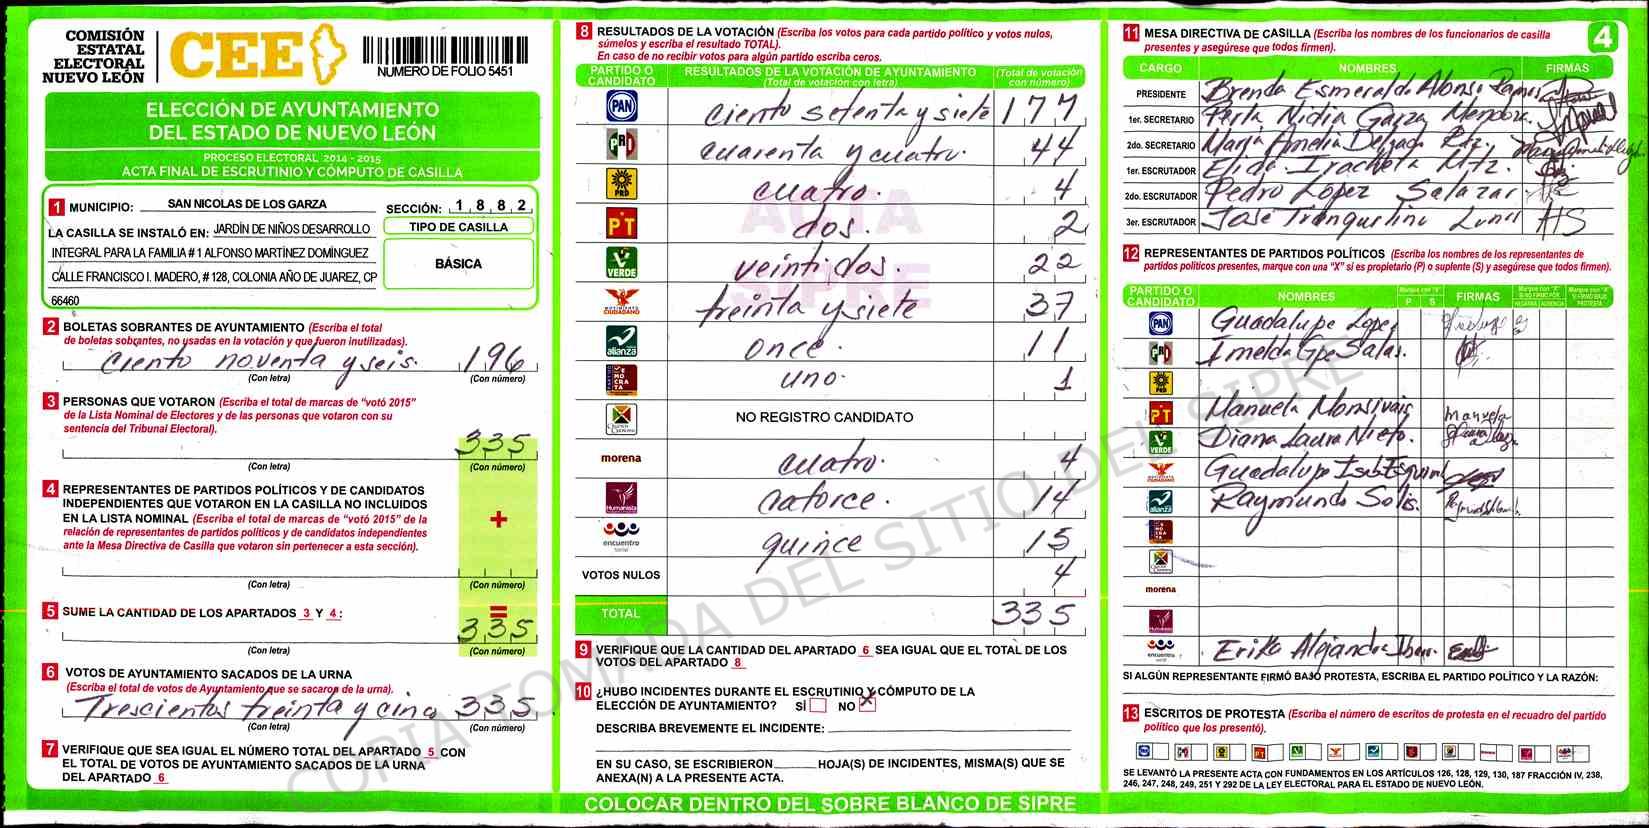 COMISIÓN
ESTATAL
ELECTORAL
NUEVO LEÓN
CEE
NUMERO DE FOLIO 5451
ELECCIÓN DE AYUNTAMIENTO
DEL ESTADO DE NUEVO LEÓN
PROCESO ELECTORAL 2014 - 2015
ACTA FINAL DE ESCRUTINIO Y CÓMPUTO DE CASILLA
1 MUNICIPIO: SAN NICOLAS DE LOS GARZA SECCIÓN: 1 8 8 2
LA CASILLA SE INSTALÓ EN: JARDÍN DE NIÑOS DESARROLLO
INTEGRAL PARA LA FAMILIA # 1 ALFONSO MARTÍNEZ DOMÍNGUEZ
CALLE FRANCISCO I. MADERO, # 128, COLONIA AÑO DE JUAREZ, CP
66460
TIPO DE CASILLA
BÁSICA
2 BOLETAS SOBRANTES DE AYUNTAMIENTO (Escriba el total
de boletas sobrantes, no usadas en la votación y que fueron inutilizadas).
ciento noventa y seis. 196
(Con letra) (Con número)
3 PERSONAS QUE VOTARON (Escriba el total de marcas de "votó 2015"
de la Lista Nominal de Electores y de las personas que votaron con su
sentencia del Tribunal Electoral).
335
(Con letra) (Con número)
4 REPRESENTANTES DE PARTIDOS POLÍTICOS Y DE CANDIDATOS
INDEPENDIENTES QUE VOTARON EN LA CASILLA NO INCLUIDOS
EN LA LISTA NOMINAL (Escriba el total de marcas de "votó 2015" de la
relación de representantes de partidos políticos y de candidatos independientes
ante la Mesa Directiva de Casilla que votaron sin pertenecer a esta sección).
+
(Con letra) (Con número)
=
5 SUME LA CANTIDAD DE LOS APARTADOS 3 Y 4:
335
(Con letra) (Con número)
6 VOTOS DE AYUNTAMIENTO SACADOS DE LA URNA
(Escriba el total de votos de Ayuntamiento que se sacaron de la urna).
Trescientos treinta y cinco 335
(Con letra) (Con número)
7 VERIFIQUE QUE SEA IGUAL EL NÚMERO TOTAL DEL APARTADO 5 CON
EL TOTAL DE VOTOS DE AYUNTAMIENTO SACADOS DE LA URNA
DEL APARTADO 6
8 RESULTADOS DE LA VOTACIÓN (Escriba los votos para cada partido político y votos nulos,
súmelos y escriba el resultado TOTAL).
En caso de no recibir votos para algún partido escriba ceros.
PARTIDO O CANDIDATO RESULTADOS DE LA VOTACIÓN DE AYUNTAMIENTO (Total de votación con letra) (Total de votación con número)
PAN ciento setenta y siete 177
PRD cuarenta y cuatro. 44
PRD cuatro. 4
PT dos. 2
VERDE veintidos. 22
MOVIMIENTO CIUDADANO treinta y siete 37
alianza once. 11
DEMOCRATA uno. 1
NO REGISTRO CANDIDATO
morena cuatro. 4
Humanista catorce. 14
encuentro social quince 15
VOTOS NULOS 4
TOTAL 335
ACTA
SIPRE
9 VERIFIQUE QUE LA CANTIDAD DEL APARTADO 6 SEA IGUAL QUE EL TOTAL DE LOS
VOTOS DEL APARTADO 8
10 ¿HUBO INCIDENTES DURANTE EL ESCRUTINIO Y CÓMPUTO DE LA
ELECCIÓN DE AYUNTAMIENTO? SÍ NO X
DESCRIBA BREVEMENTE EL INCIDENTE:
EN SU CASO, SE ESCRIBIERON HOJA(S) DE INCIDENTES, MISMA(S) QUE SE
ANEXA(N) A LA PRESENTE ACTA.
COLOCAR DENTRO DEL SOBRE BLANCO DE SIPRE
COPIA TOMADA DEL SITIO DEL SIPRE
4
11 MESA DIRECTIVA DE CASILLA (Escriba los nombres de los funcionarios de casilla
presentes y asegúrese que todos firmen).
CARGO NOMBRES FIRMAS
PRESIDENTE Brenda Esmeralda Alonso Ramos
1er. SECRETARIO Perla Nidia Garza Mendoza
2do. SECRETARIO Maria Amelia Delgado
1er. ESCRUTADOR Elida Iracheta Mtz
2do. ESCRUTADOR Pedro Lopez Salazar
3er. ESCRUTADOR José Tranquilino
12 REPRESENTANTES DE PARTIDOS POLÍTICOS (Escriba los nombres de los representantes de
partidos políticos presentes, marque con una "X" si es propietario (P) o suplente (S) y asegúrese que todos firmen).
PARTIDO O CANDIDATO NOMBRES P S FIRMAS
PAN Guadalupe Lopez
PRD Imelda Gpe Salas.
PRD
PT Manuela Monsivais Manuela
VERDE Diana Laura Nieto.
Guadalupe
alianza Raymundo Solis.
morena
Humanista
encuentro social Erika Alejandra
SI ALGÚN REPRESENTANTE FIRMÓ BAJO PROTESTA, ESCRIBA EL PARTIDO POLÍTICO Y LA RAZÓN:
13 ESCRITOS DE PROTESTA (Escriba el número de escritos de protesta en el recuadro del partido
político que los presentó).
SE LEVANTÓ LA PRESENTE ACTA CON FUNDAMENTOS EN LOS ARTÍCULOS 126, 128, 129, 130, 187 FRACCIÓN IV, 238,
246, 247, 248, 249, 251 Y 292 DE LA LEY ELECTORAL PARA EL ESTADO DE NUEVO LEÓN.